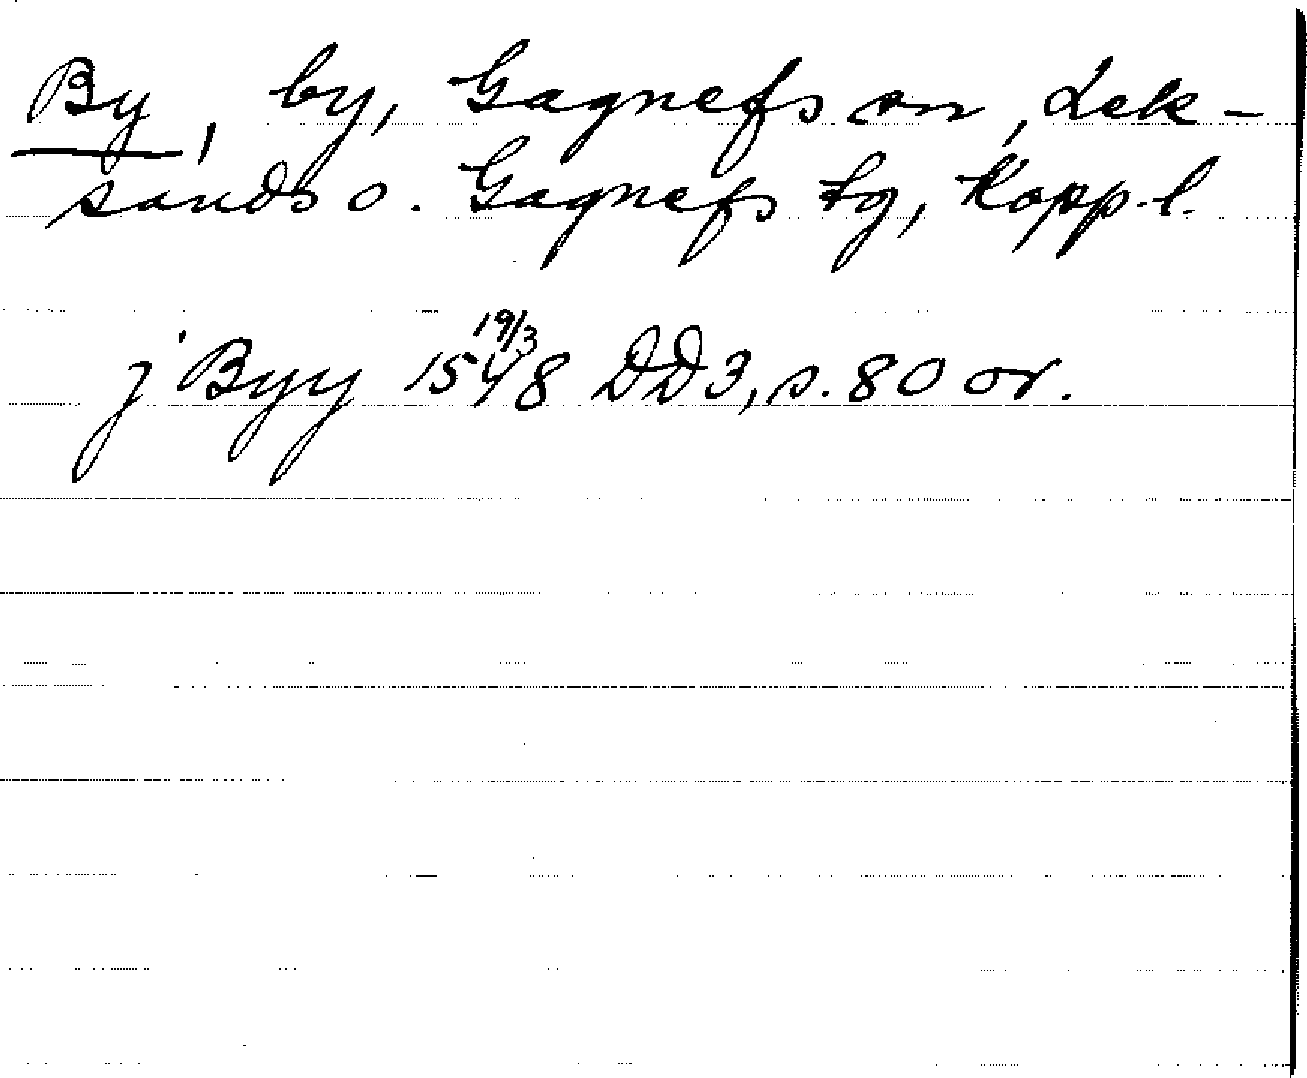 By, by, Gagnefs sn, Lek-
sands o. Gagnefs tg, Kopp.l.
19/3
j Byy 1548 DD3, s. 80 or.